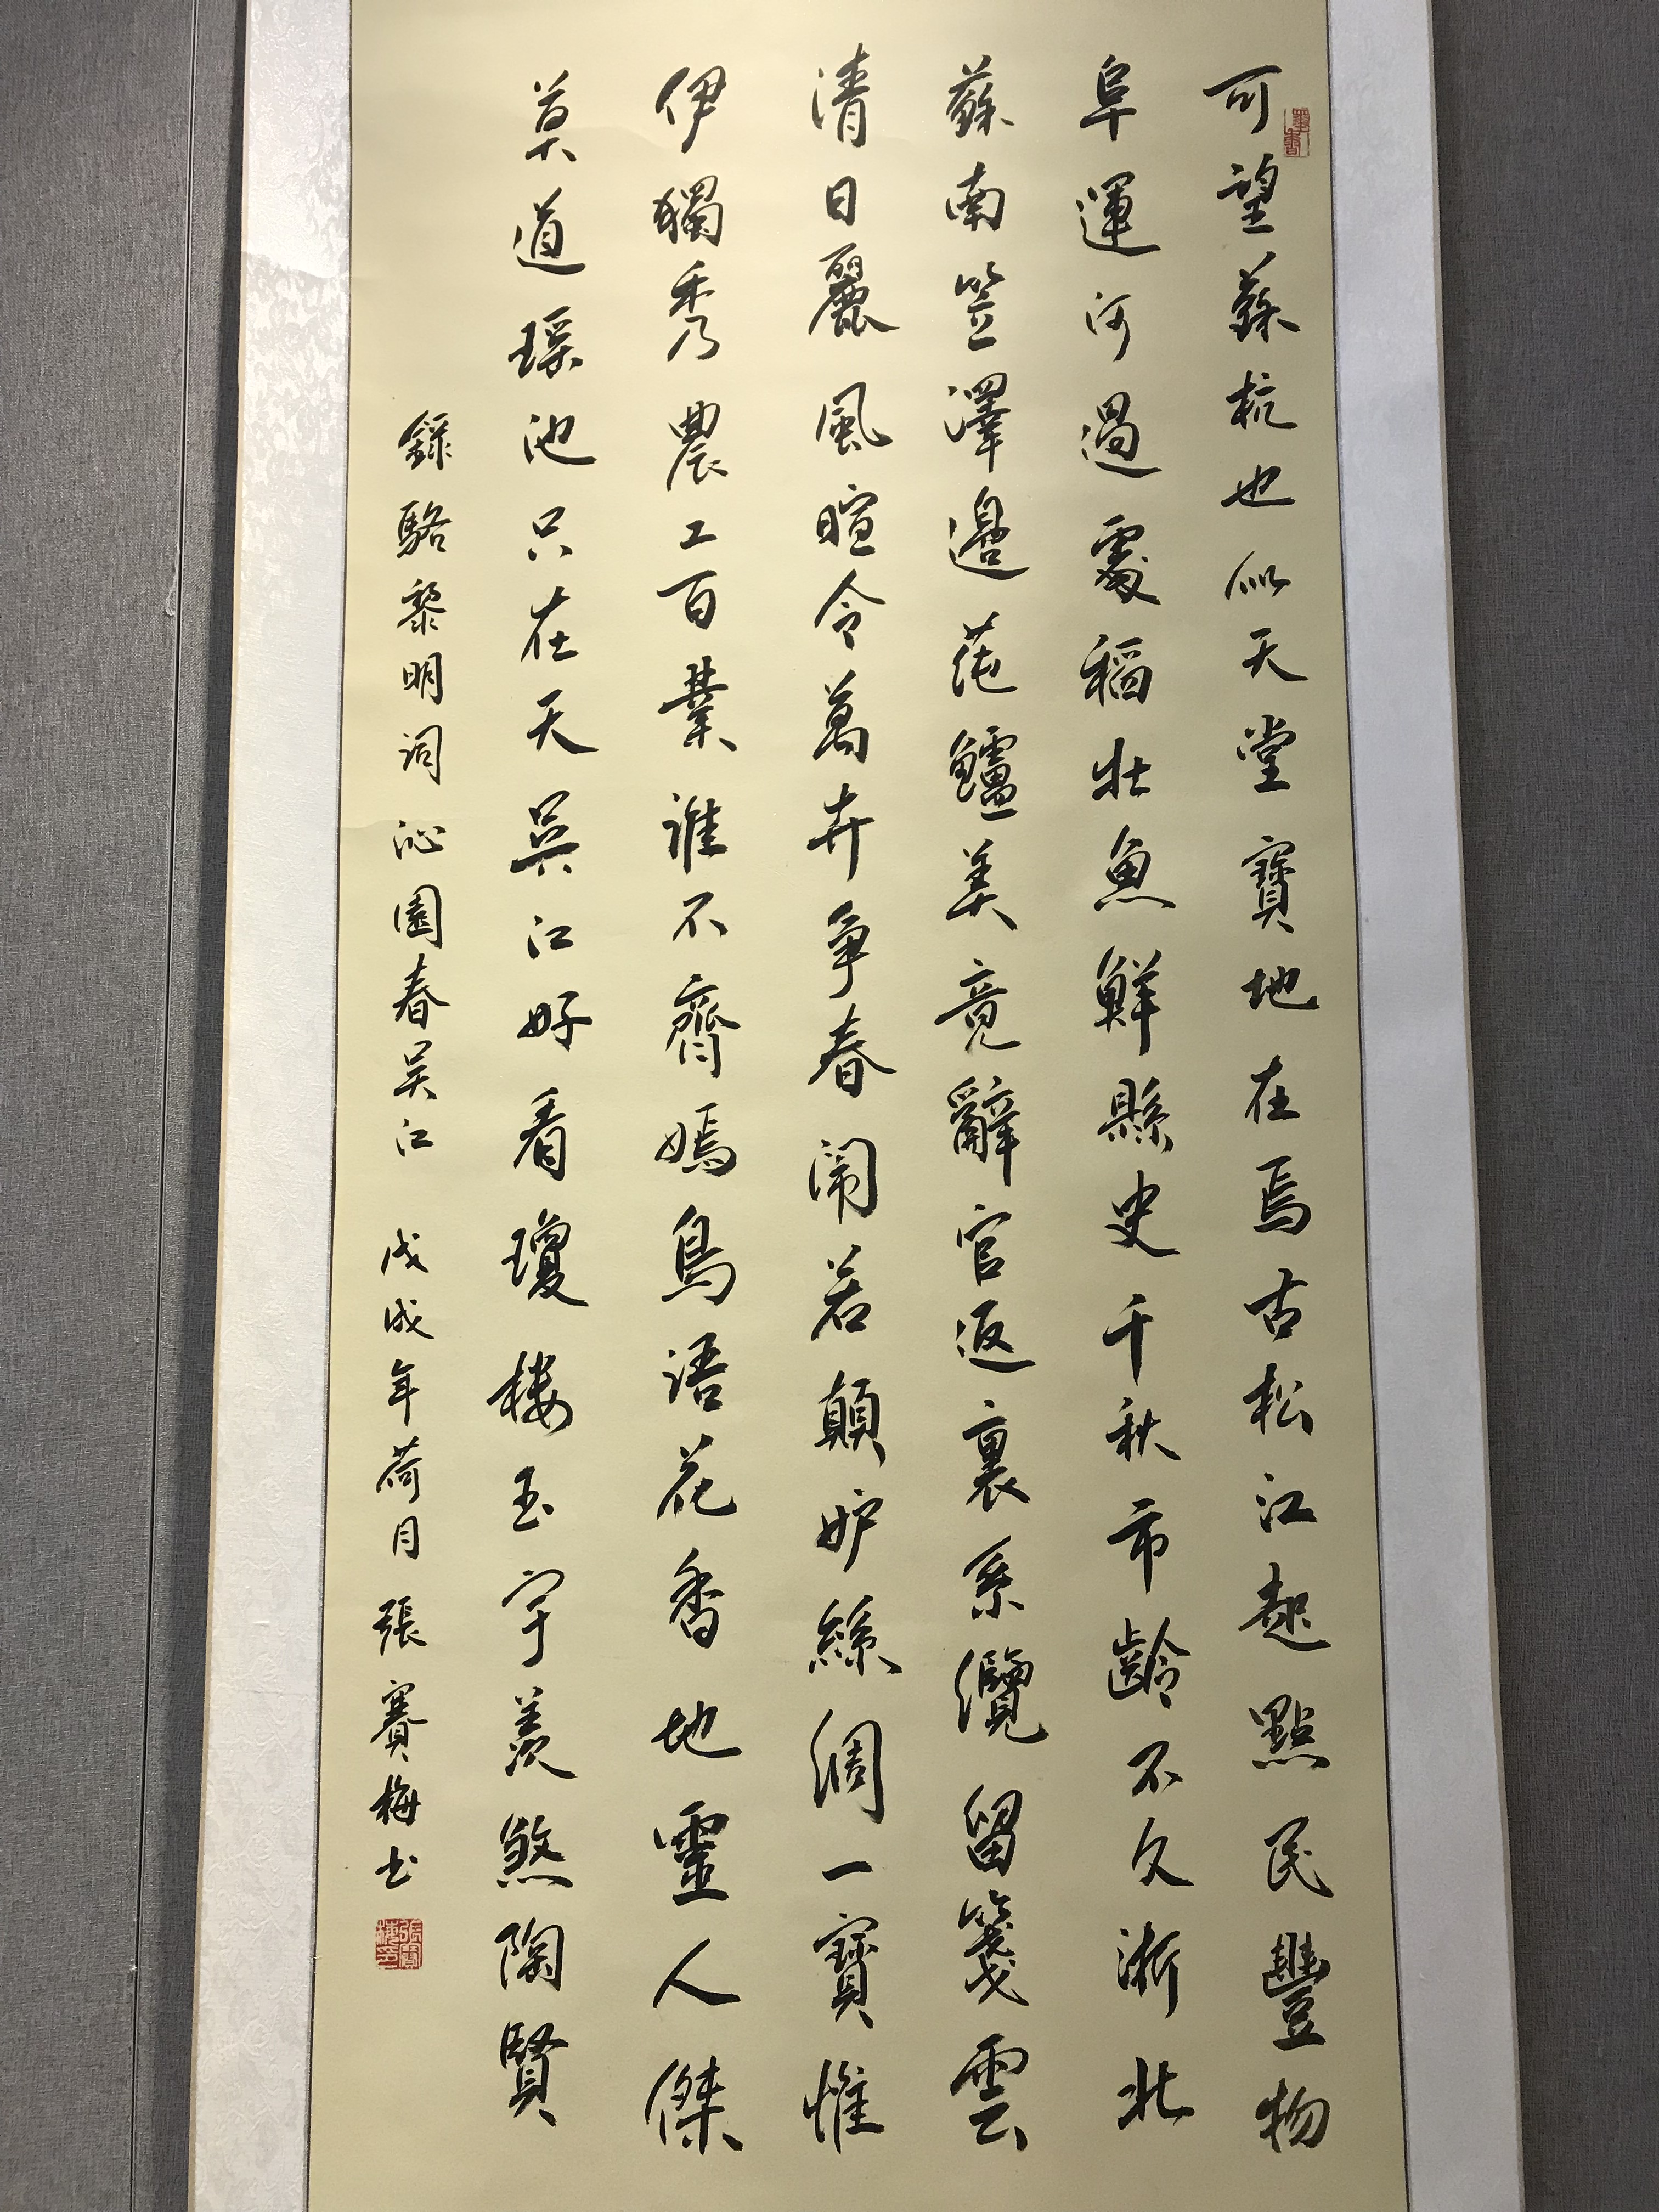 可望蘇杭也似天堂寶地在焉古松江起點民豐物
阜運河過處稻壯魚鮮縣史千秋市齡不久浙北
蘇南笠澤邊蓴鱸美竟辭官返裏系纜留箋雲
清日麗風暄令萬卉爭春鬧若顛妒絲綢一寶惟
伊獨秀農工百業誰不齊嫣鳥語花香地靈人傑
莫道瑤池只在天吳江好看瓊樓玉宇羨煞陶賢
錄駱黎明词沁園春吴江 戊戌年荷月張賽梅书
張賽梅印